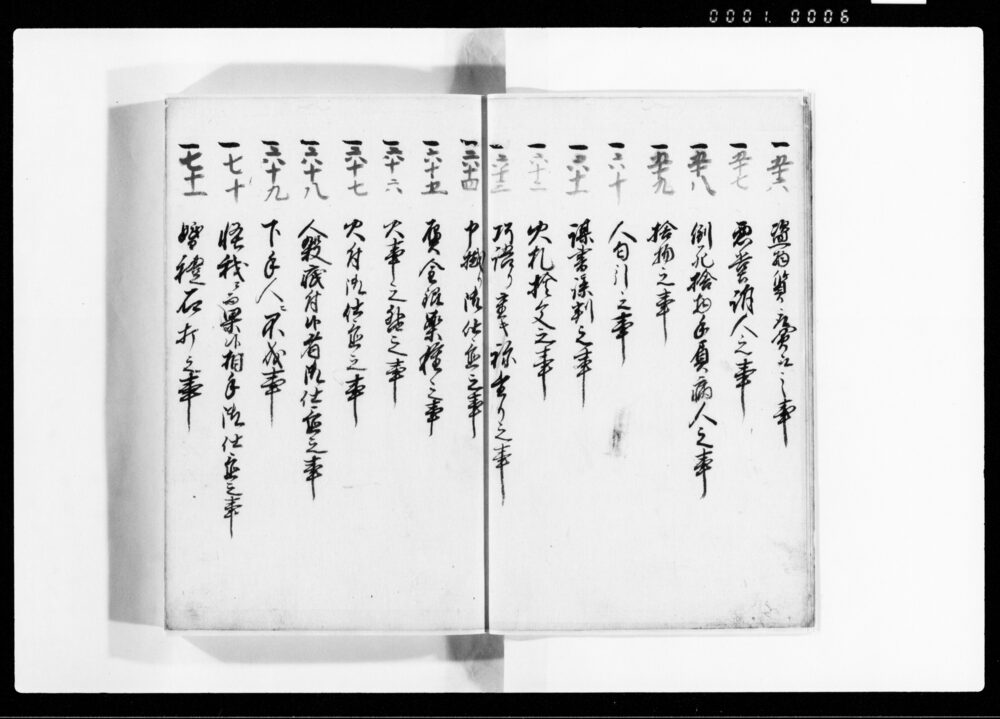 0001. 0006
一五十六 盗物質ニ置候之事
一五十七 悪党訴人之事
一五十八 倒死捨物手負病人之事
一五十九 捨物之事
一六十 人勾引之事
一六十一 謀書謀判之事
一六十二 火札捨文之事
一六十三 巧語り重キ株売り之事
一六十四 申掛ケ御仕置之事
一六十五 贋金銀薬種之事
一六十六 火事之節之事
一六十七 火付御仕置之事
一六十八 人殺疵付候者御仕置之事
一六十九 下手人ニ不成事
一七十 怪我ニ而果候相手御仕置之事
一七十一 婚礼石打之事